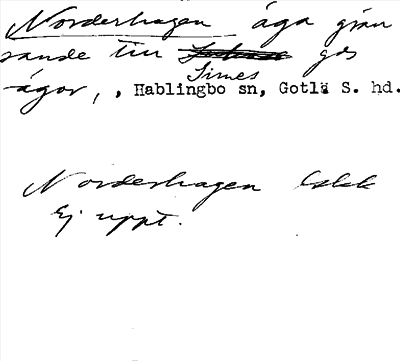 Norderhagen äga grän
sande till Simes gds
ägor, , Hablingbo sn, Gotlä S. hd.
Norderhagen
Ej uppt.